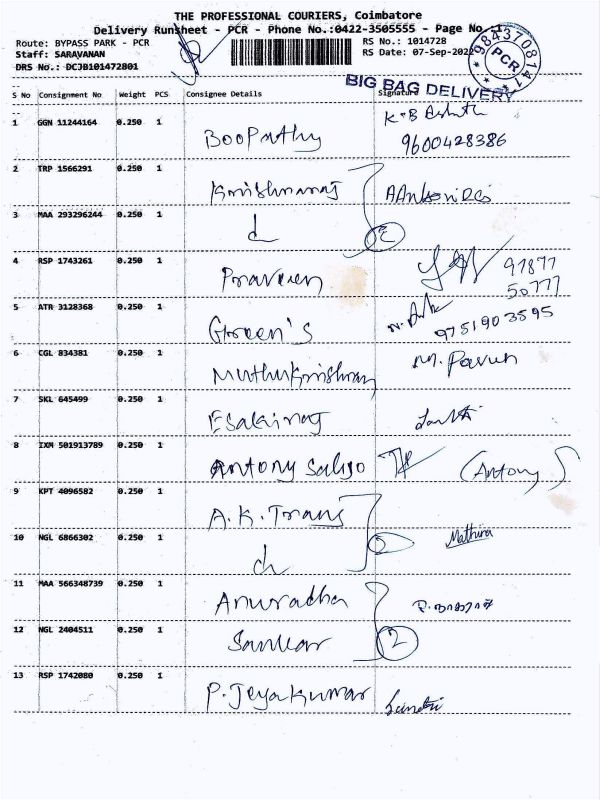 THE PROFESSIONAL COURIERS, Coimbatore
Delivery Runsheet - PCR - Phone No.:0422-3505555 - Page No.:1
Route: BYPASS PARK - PCR
RS No.: 1014728
Staff: SARAVANAN
RS Date: 07-Sep-2022
DRS No.: DCJB101472801
9843708141
PCR
BIG BAG DELIVERY
S No Consignment No Weight PCS Consignee Details Signature
1 GGN 11244164 0.250 1 Boopathy 9600428386
2 TRP 1566291 0.250 1 Krishnaraj
3 MAA 293296244 0.250 1 2
4 RSP 1743261 0.250 1 Praveen 97877
50777
5 ATR 3128368 0.250 1 Green's 9751903595
6 CGL 834381 0.250 1 Muthukrishnan M. Pavun
7 SKL 645499 0.250 1 Esakiraj
8 IXM 501913789 0.250 1 Antony (Antony)
9 KPT 4096582 0.250 1 A.K. Trans
10 NGL 6866302 0.250 1 Mathira
11 MAA 566348739 0.250 1 Anuradha
12 NGL 2404511 0.250 1 Sankar 2
13 RSP 1742080 0.250 1 P. Jeyakumar